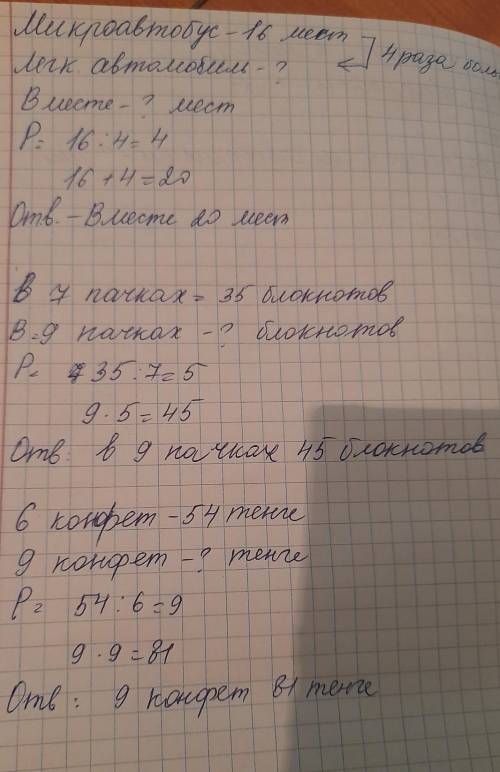 Микроавтобус - 16 мест
4 раза боль
Легк автомобиль - ?
Вместе - ? мест
Р = 16 : 4 = 4
16 + 4 = 20
Отв. - Вместе 20 мест
В 7 пачках = 35 блокнотов
В = 9 пачках - ? блокнотов
Р = 35 : 7 = 5
9 · 5 = 45
Отв : в 9 пачках 45 блокнотов
6 конфет - 54 тенге
9 конфет - ? тенге
Р = 54 : 6 = 9
9 · 9 = 81
Отв : 9 конфет 81 тенге